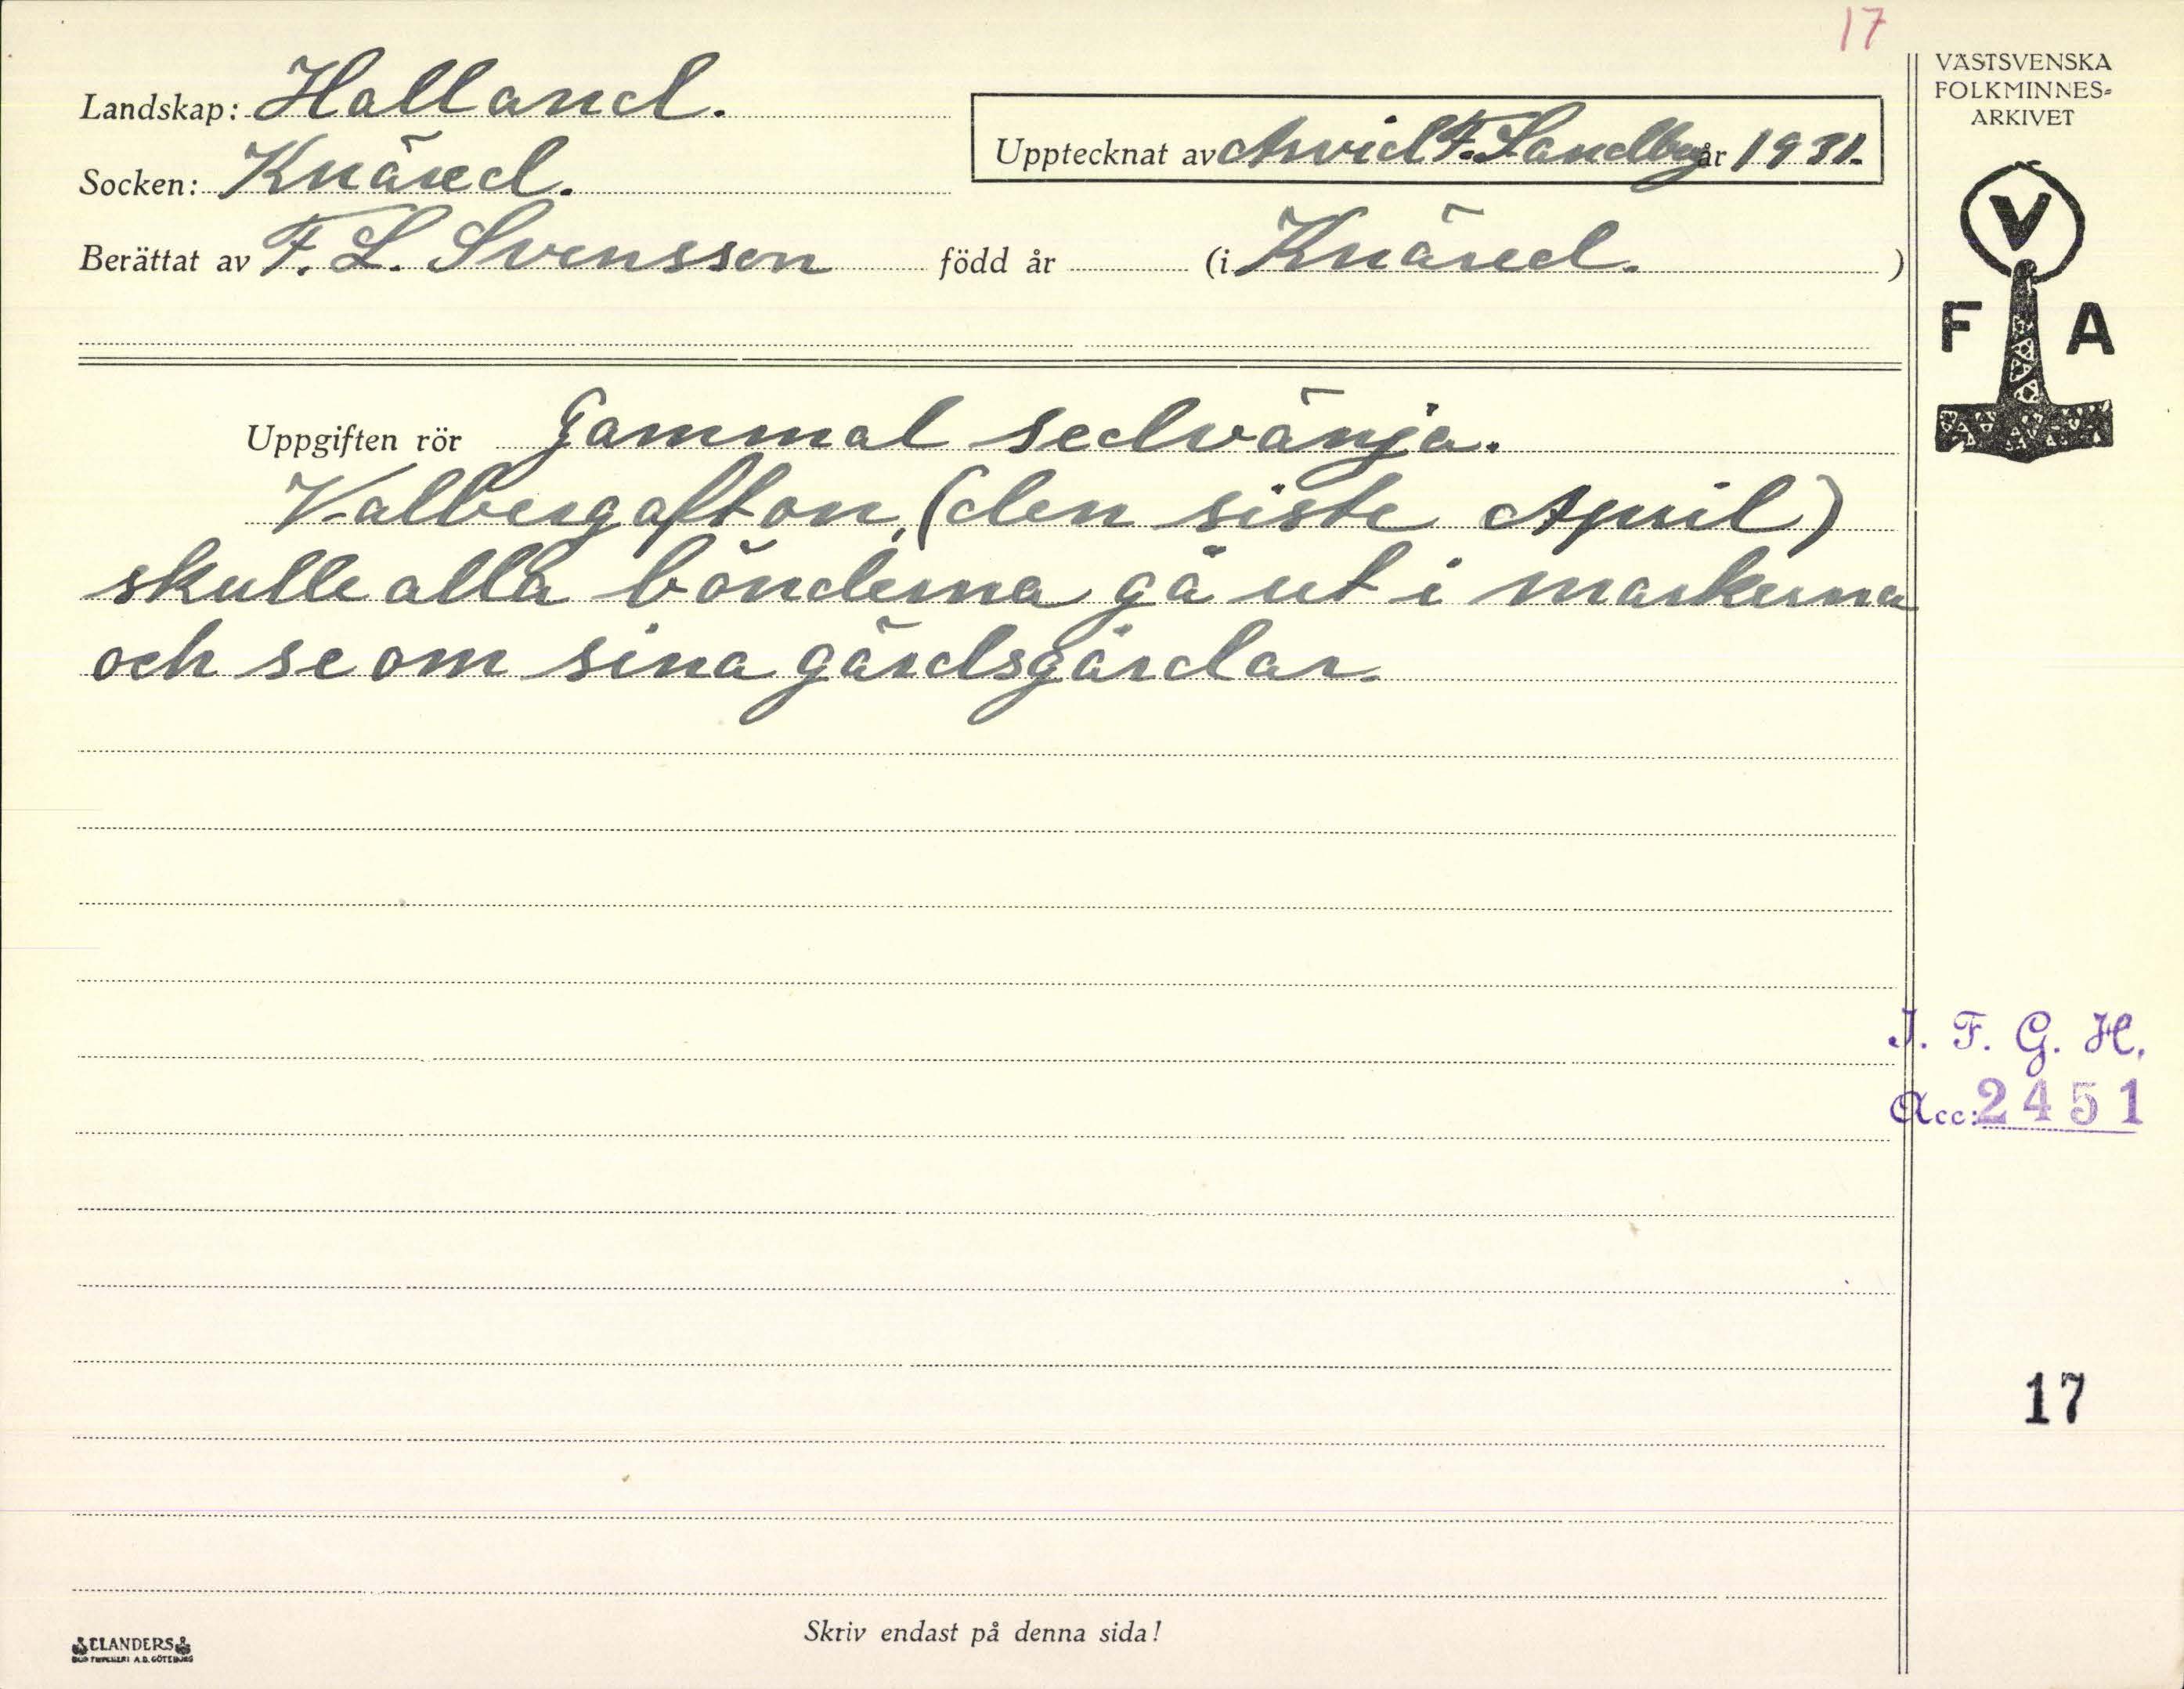 17
VÄSTSVENSKA
FOLKMINNES-
ARKIVET
Landskap: Halland.
Upptecknat av Arvid F. Sandberg år 1931.
Socken: Knäred.
Berättat av F. L. Svensson född år (i Knäred. )
V
F A
Uppgiften rör Gammal sedvänja.
Valbergafton, (den siste April)
skulle alla bönderna gå ut i markerna
och se om sina gärdsgårdar.
I. F. G. H.
Acc: 2451
17
Skriv endast på denna sida!
ELANDERS
BOKTRYCKERI A.B. GÖTEBORG